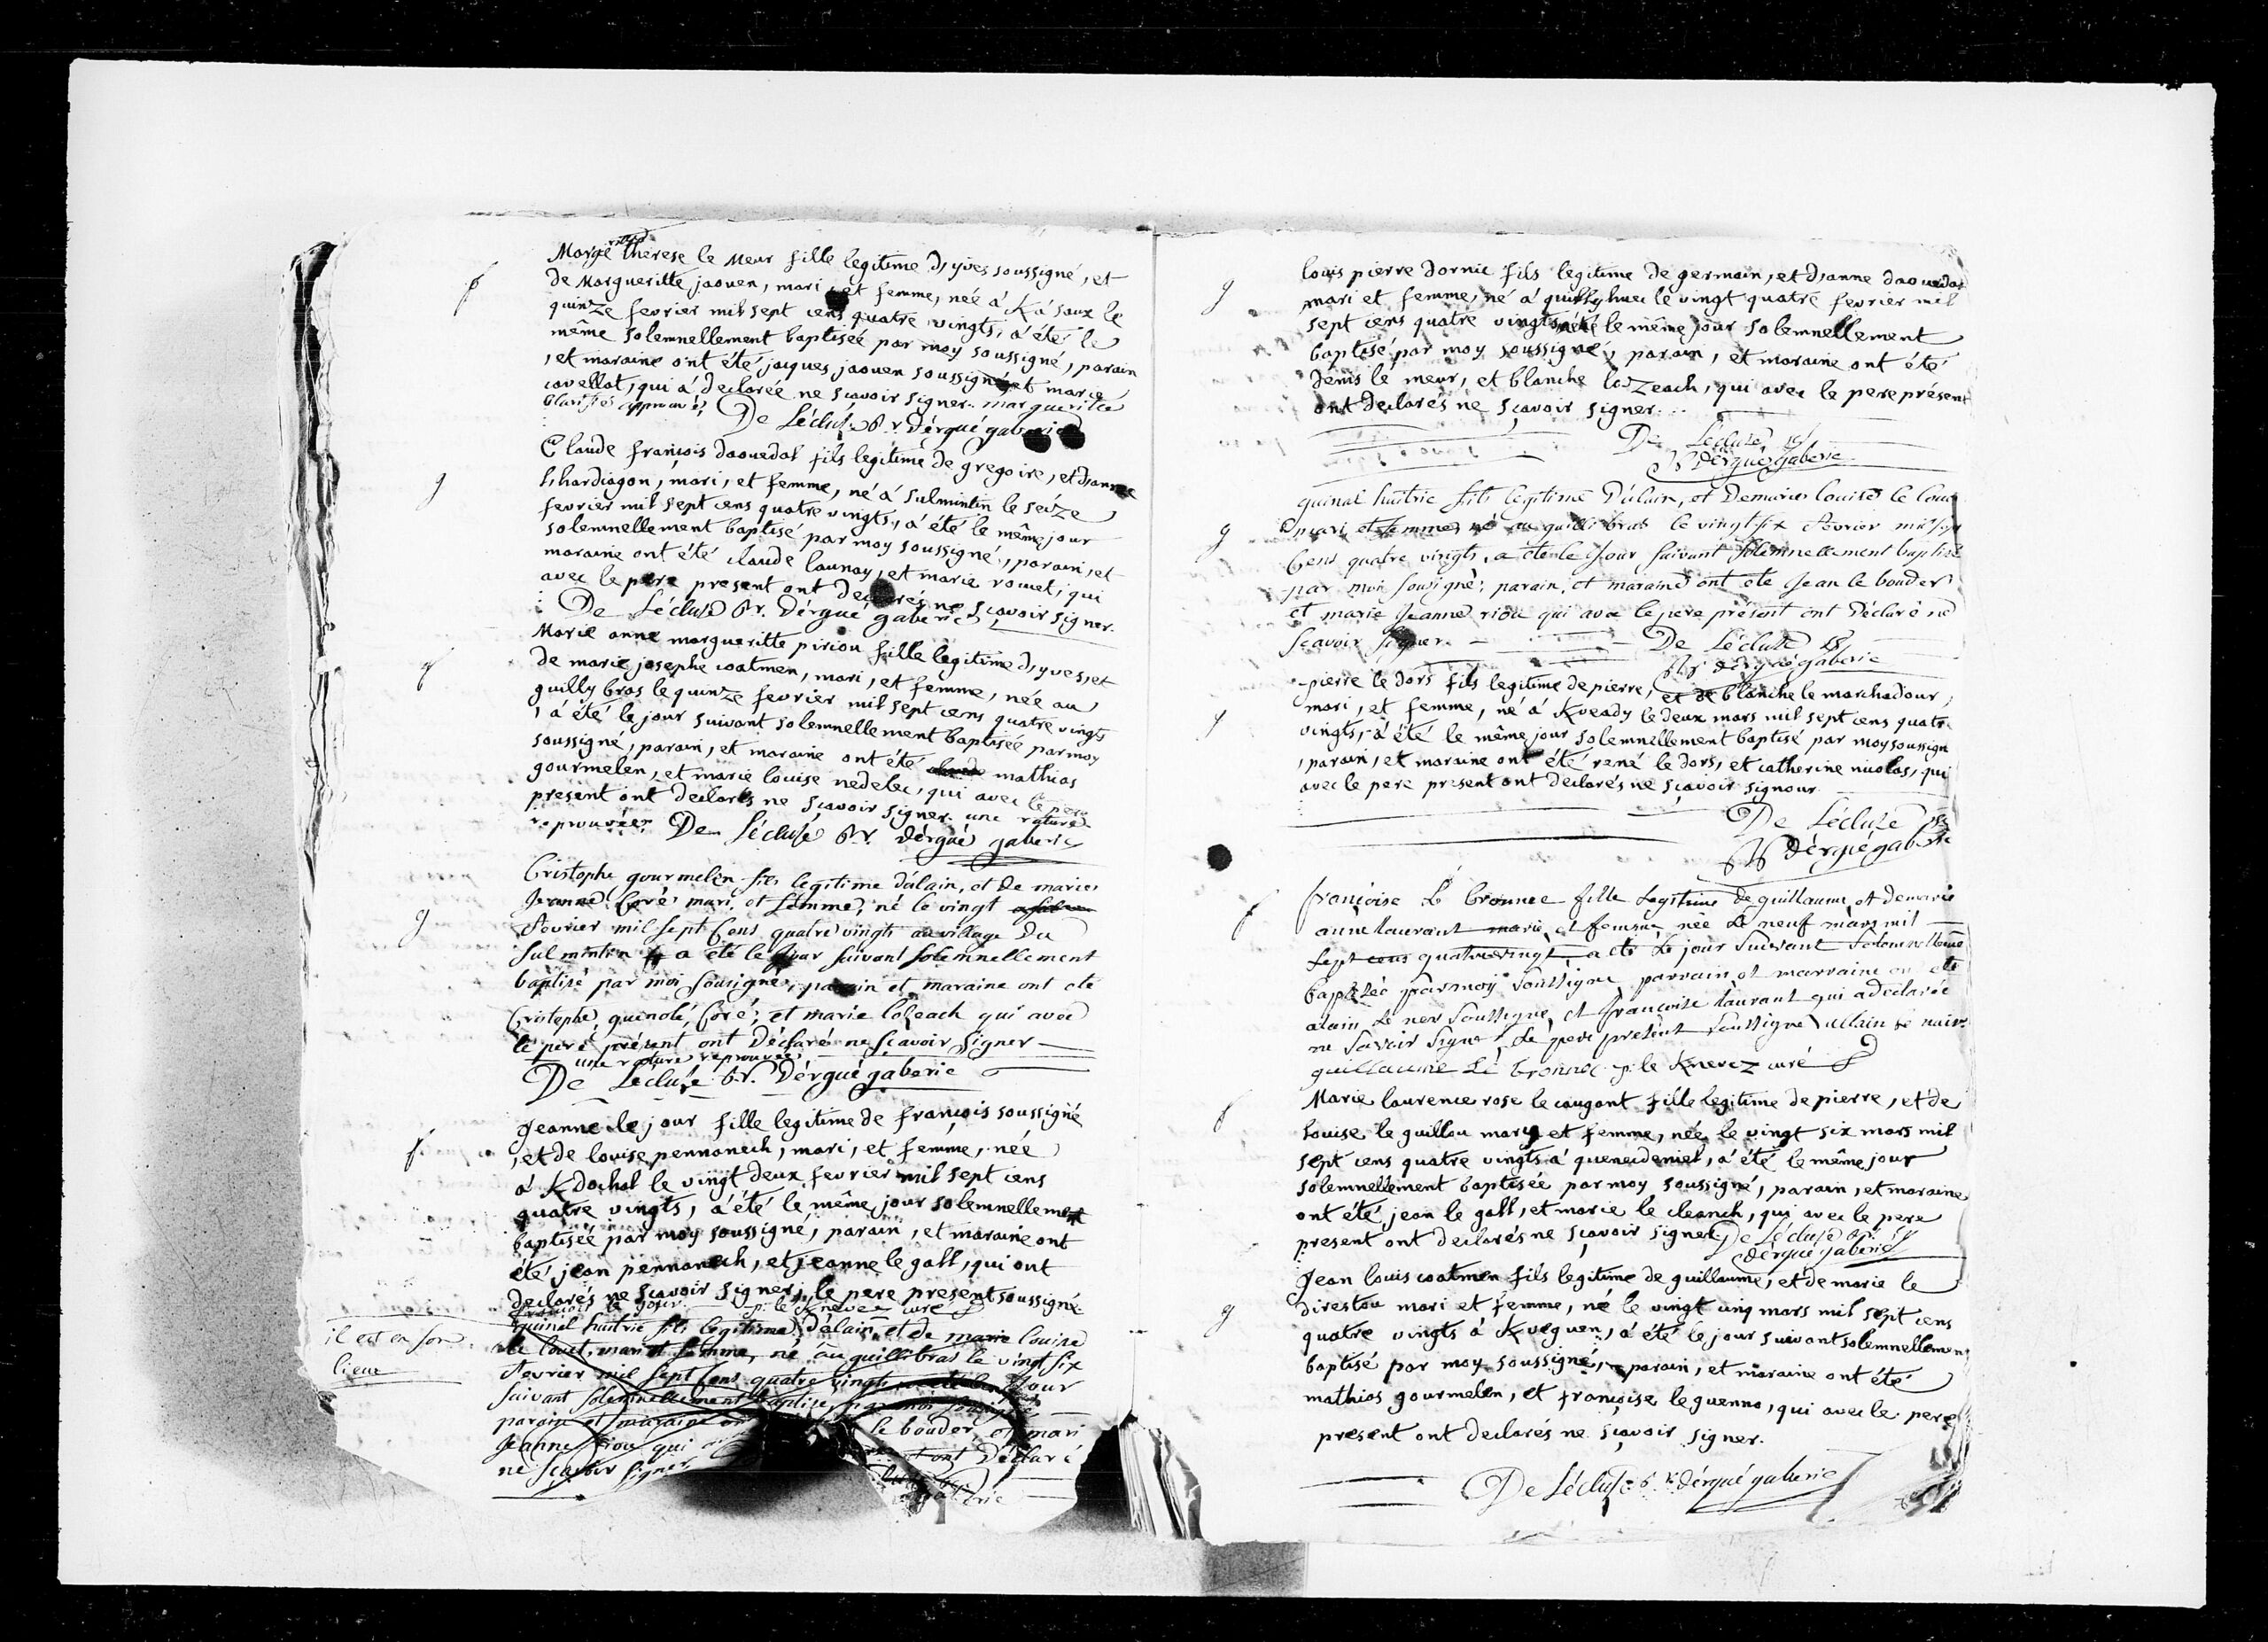 f
Marg^uerite therese le Meur fille legitime d'yves soussigné, et
de Margueritte jaouen, mari, et femme, née à K saux le
quinze fevrier mil sept cens quatre vingts, à été le
même solemnellement baptiseé par moy soussigné, parain
, et maraine ont été jacques jaouen soussigné et marie
cavellat, qui à declarée ne sçavoir signer. marguerite
approuvé, De Lécluse Pr. dérgué gaberic
g
Claude françois daouedal fils legitime de gregoire, et d'anne
hhardiagon, mari, et femme, né à sulmintin le seize
fevrier mil sept cens quatre vingts, à été le même jour
solemnellement baptisé par moy soussigné, parain, et
maraine ont été claude launay, et marie rouet, qui
avec le pere present ont declarés ne sçavoir signer.
De Lécluse Pr. dérgué gaberic
f
Marie anne margueritte piriou fille legitime d'yves, et
de marie josephe coatmen, mari, et femme, née au
guilly bras le quinze fevrier mil sept cens quatre vingts
, à été le jour suivant solemnellement baptisée par moy
soussigné, parain, et maraine ont été mathias
gourmelen, et marie louise nedelec, qui avec le pere
present ont declarés ne sçavoir signer. une rature
reprouvée. De Lécluse Pr. dérgué gaberic
g
Cristophe gourmelen fils legitime d'alain, et de marie
Jeanne Coré mari, et femme, né le vingt
fevrier mil sept Cens quatre vingts au village Du
Sulmintin a été le Jour suivant solemnellement
baptisé par moi sousigné, parain et maraine ont été
Cristophe quenolé Coré, et marie loZeach qui avec
le pere présent ont Déclaré ne sçavoir signer
une rature reprouvée
De Lécluse Pr. Dérgué gaberic
f
Jeanne le jour fille legitime de françois soussigné
, et de louise pennanech, mari, et femme, née
à K dochal le vingt deux fevrier mil sept cens
quatre vingts, à été le même jour solemnellement
baptisée par moy soussigné, parain, et maraine ont
été jean pennanech, et jeanne le gall, qui ont
declarés ne sçavoir signer, le pere present soussigné
françois le jour. p: le Knevez curé
il est en son
lieue
quinal huitric fils legitime d'alain et de marie louise
le louet, mari et femme, né au guillibras le vingt six
Fevrier mil sept Cens quatre vingts Jour
suivant solemnellement baptise, par moi sousigné
parain et maraine ont le bouder, et mari
Jeanne riou qui ont Déclaré
ne sçavoir signer
g
louis pierre dornic fils legitime de germain, et d'anne daouedal
mari et femme, né à quillyhuec le vingt quatre fevrier mil
sept cens quatre vingts été le même jour solemnellement
baptisé par moy soussigné, parain, et maraine ont été
denis le meur, et blanche lozeach, qui avec le pere présent
ont declarés ne sçavoir signer.
De Lécluse
Pr dérgué gaberic
g
quinal huitric fils legitime d'alain, et De marie louise le loue
mari et femme, né au quillibras le vingt six fevrier mil sept
Cens quatre vingts, a été le Jour suivant solemnellement baptisé
par moi sousigné; parain, et maraine ont été Jean le bouder
et marie Jeanne riou qui avec le pere présent ont Déclaré ne
sçavoir signer. De Lécluse
Pr dérgué gaberic
g
pierre le dors fils legitime de pierre, et de blanche le marchadour,
mari, et femme, né à K veady le deux mars mil sept cens quatre
vingts, à été le même jour solemnellement baptisé par moy soussign
, parain, et maraine ont été rené le dors, et catherine nicolas, qui
avec le pere present ont declarés ne sçavoir signer
De Lécluse
Pr dérgué gaberic
f
françoise Le bronnec fille legitime de guillaume, et de marie
anne laurant marie et femme, née Le neuf mars mil
sept cens quatrevingt, a été Le jour suivant solemnellemen
baptisée par moy soussigné parrain, et marraine on été
alain Le ner soussigne, et françoise laurant qui a declarée
ne savoir signe, Le pere present soussigne allain le nair
guillaume Le bronnec p: le Knevez curé
f
Marie laurence rose le caugant fille legitime de pierre, et de
louise le guillou mary et femme, née le vingt six mars mil
sept cens quatre vingts à queneudeniel, à été le même jour
solemnellement baptisée par moy soussigné, parain, et maraine
ont été jean le gall, et marie le cleanch, qui avec le pere
present ont declarés ne sçavoir signer. De Lécluse Pr.
dérgué gaberic
g
Jean louis coatmen fils legitime de guillaume, et de marie le
direstou mari et femme, né le vingt cinq mars mil sept cens
quatre vingts à K veguen, à été le jour suivant solemnellemen
baptisé par moy soussigné, parain, et maraine ont été
mathias gourmelen, et françoise le guenno, qui avec le pere
present ont declarés ne sçavoir signer.
De Lécluse Pr. dérgué gaberic